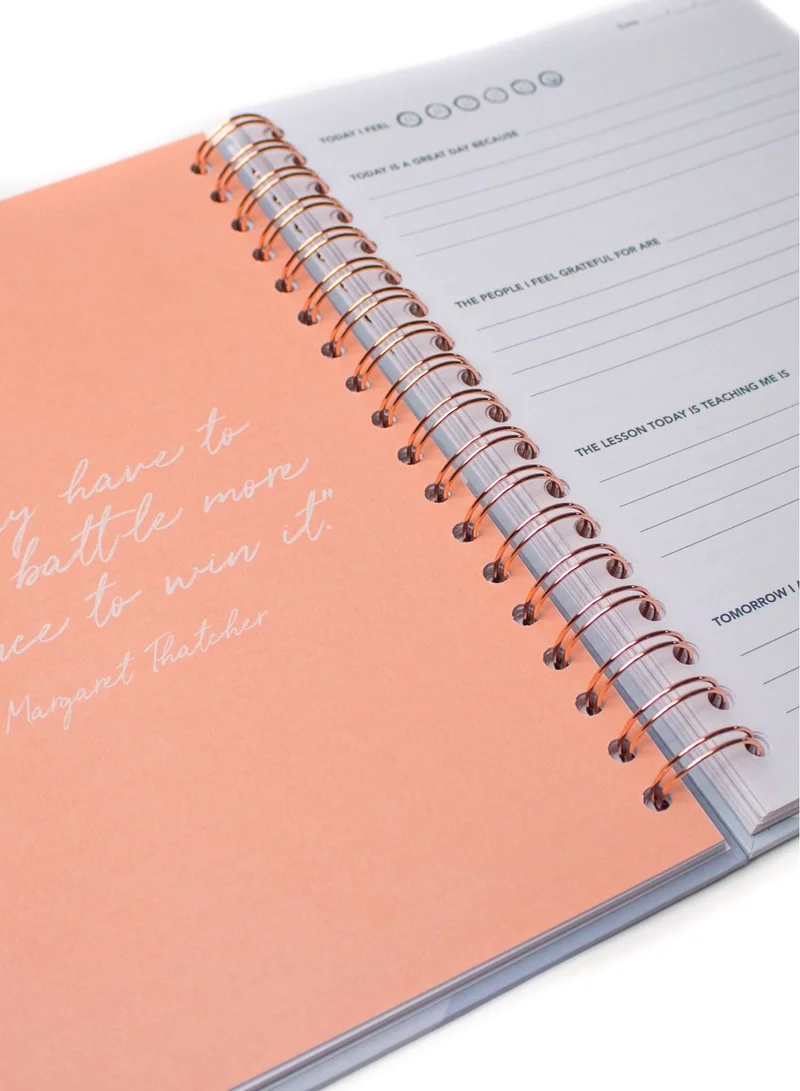 have to
battle more
to win it."
Margaret Thatcher
Date
TODAY I FEEL
TODAY IS A GREAT DAY BECAUSE
THE PEOPLE I FEEL GRATEFUL FOR ARE
THE LESSON TODAY IS TEACHING ME IS
TOMORROW I